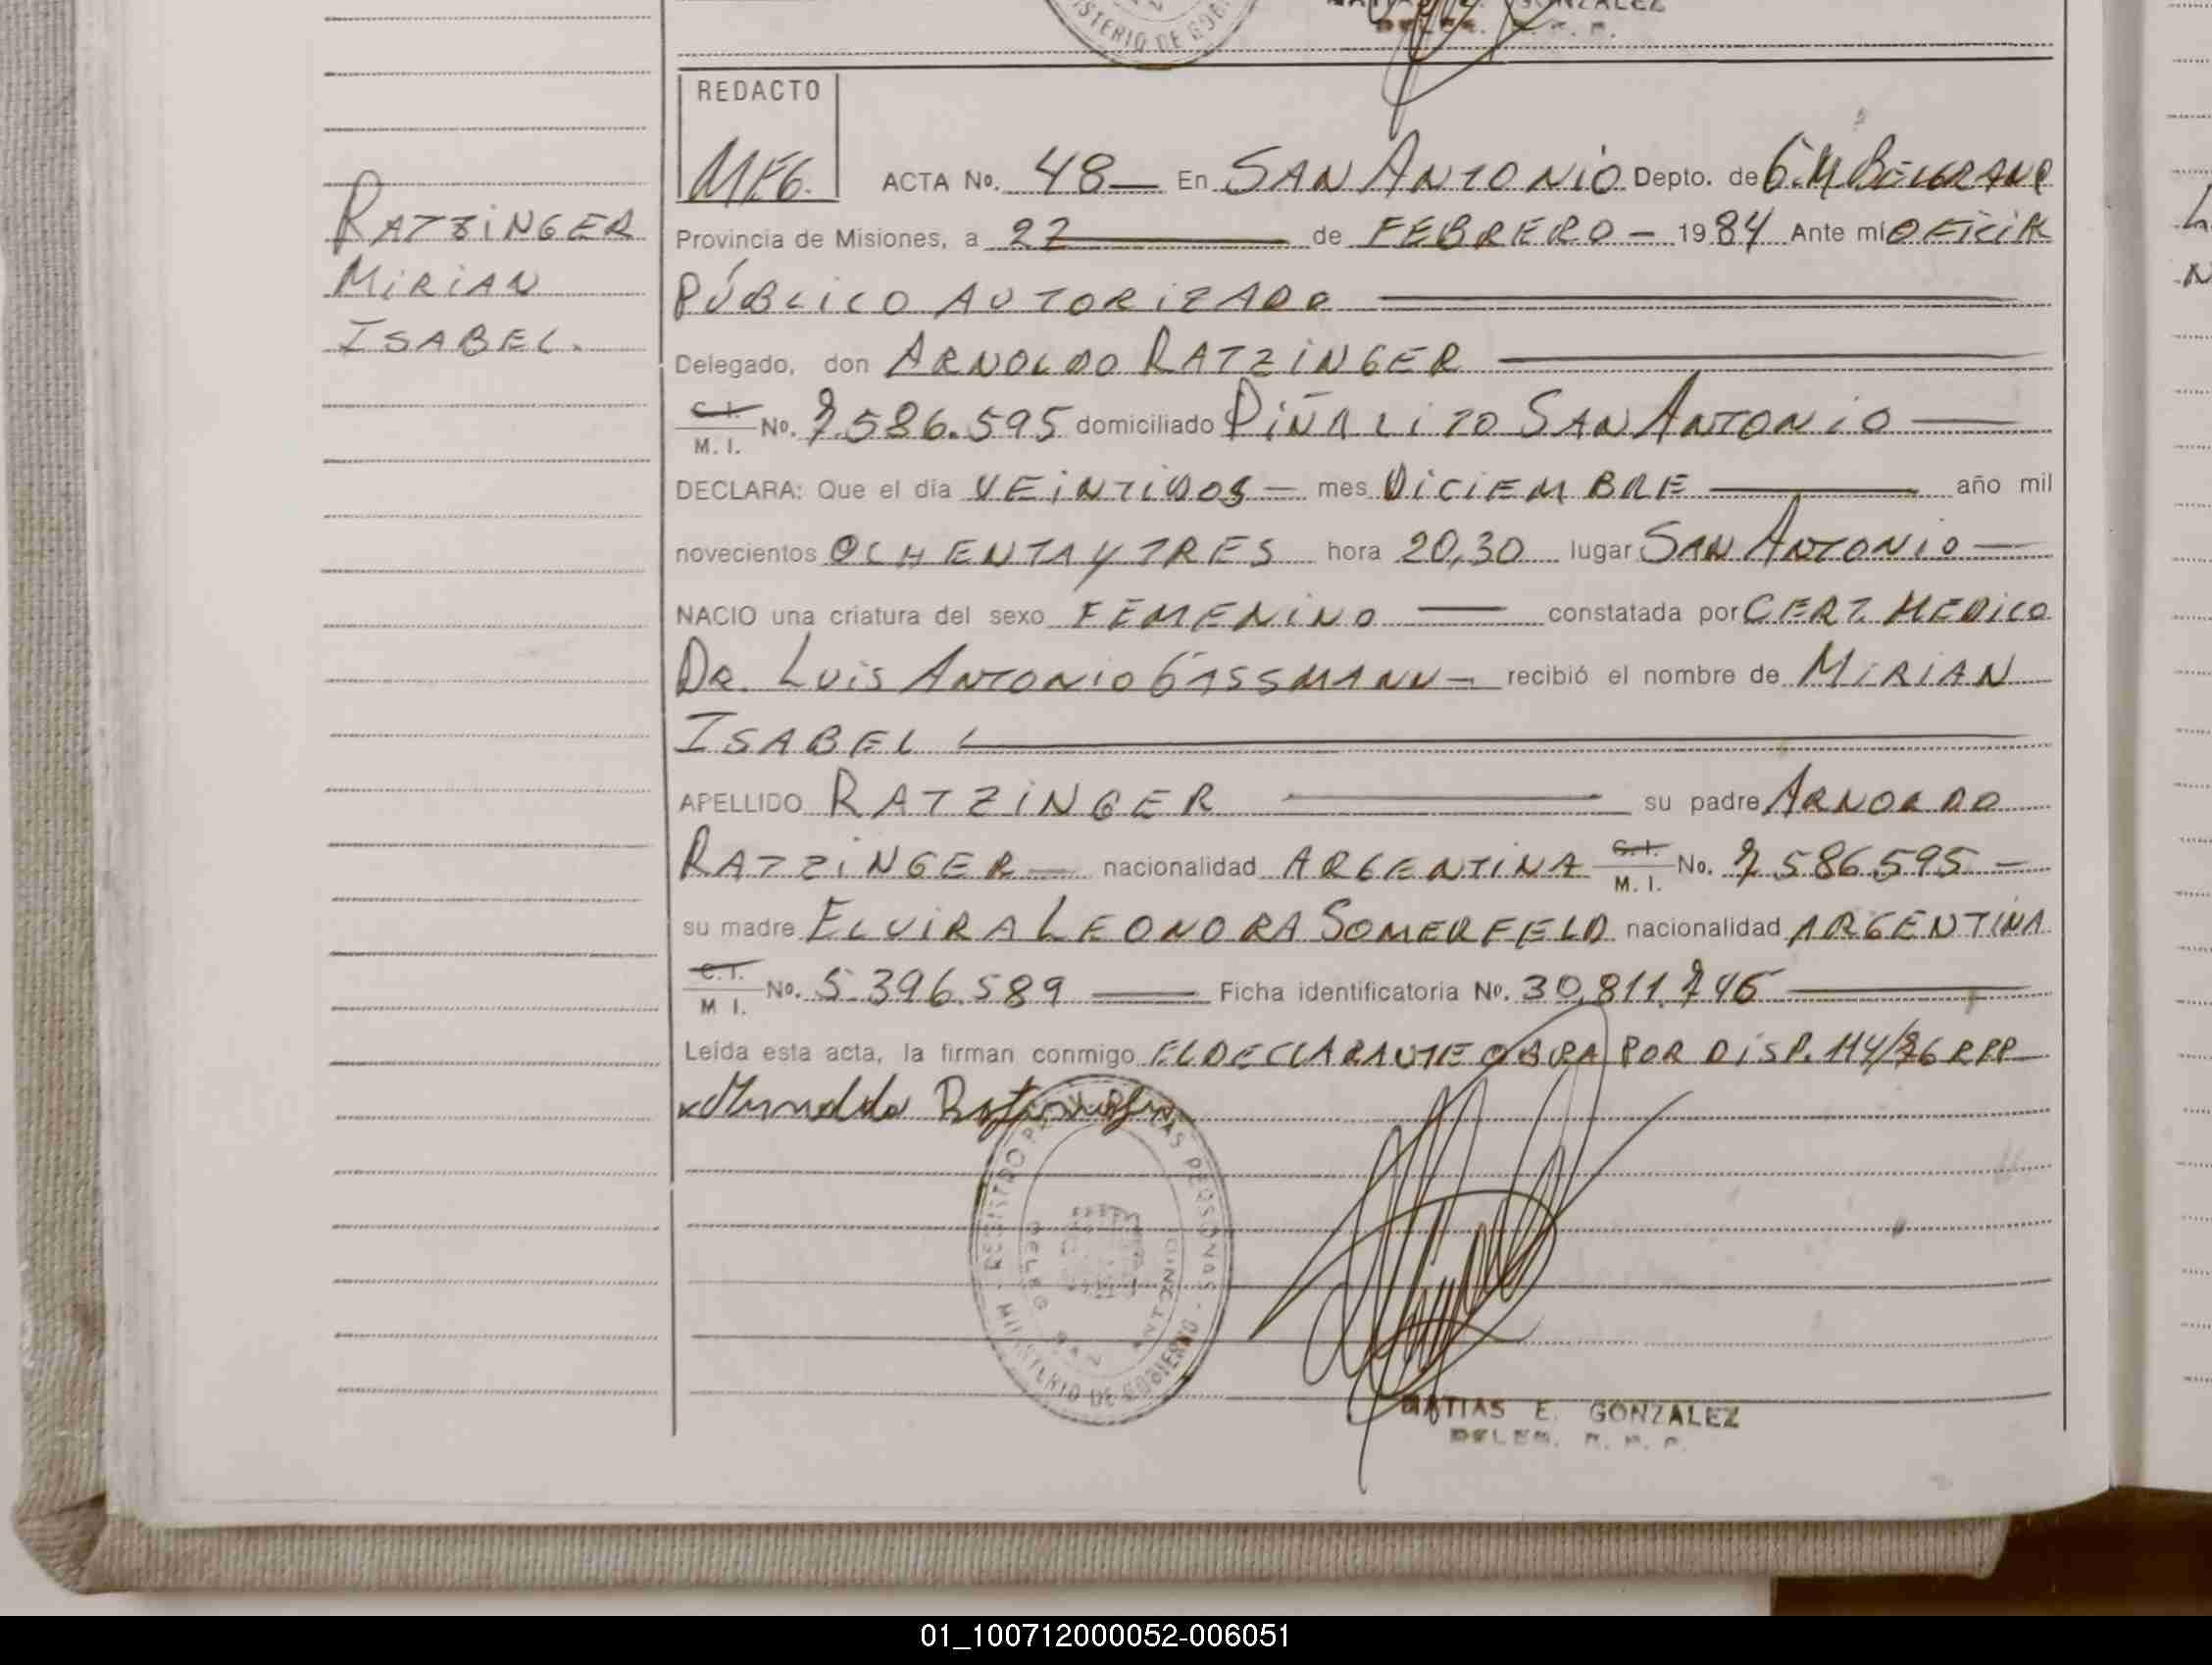 GONZALEZ
MINISTERIO DE GOB
REDACTO
MEG.
ACTA No. 48 En SAN ANTONIO Depto. de G.M BELGRANO
RATZINGER
MIRIAN
ISABEL.
Provincia de Misiones, a 22 de FEBRERO 1984 Ante mí OFICIAL
PÚBLICO AUTORIZADO
Delegado, don ARNOLDO RATZINGER
C. I. / M. I. No. 7.586.595 domiciliado PIÑALITO SAN ANTONIO
DECLARA: Que el día VEINTIDOS mes DICIEMBRE año mil
novecientos OCHENTA Y TRES hora 20,30 lugar SAN ANTONIO
NACIO una criatura del sexo FEMENINO constatada por CERT. MEDICO
DR. LUIS ANTONIO GASSMANN recibió el nombre de MIRIAN
ISABEL
APELLIDO RATZINGER su padre ARNOLDO
RATZINGER nacionalidad ARGENTINA C. I. / M. I. No. 7.586.595
su madre ELVIRA LEONORA SOMERFELD nacionalidad ARGENTINA
C. I. / M I. No. 5.396.589 Ficha identificatoria No. 30.811.746
Leída esta acta, la firman conmigo EL DECLARANTE OBRA POR DISP. 114/76 RPP
Arnoldo Ratzinger
REGISTRO PROVINCIAL DE LAS PERSONAS - MINISTERIO DE GOBIERNO
MATIAS E. GONZALEZ
DELEG. R. P. P.
01_100712000052-006051